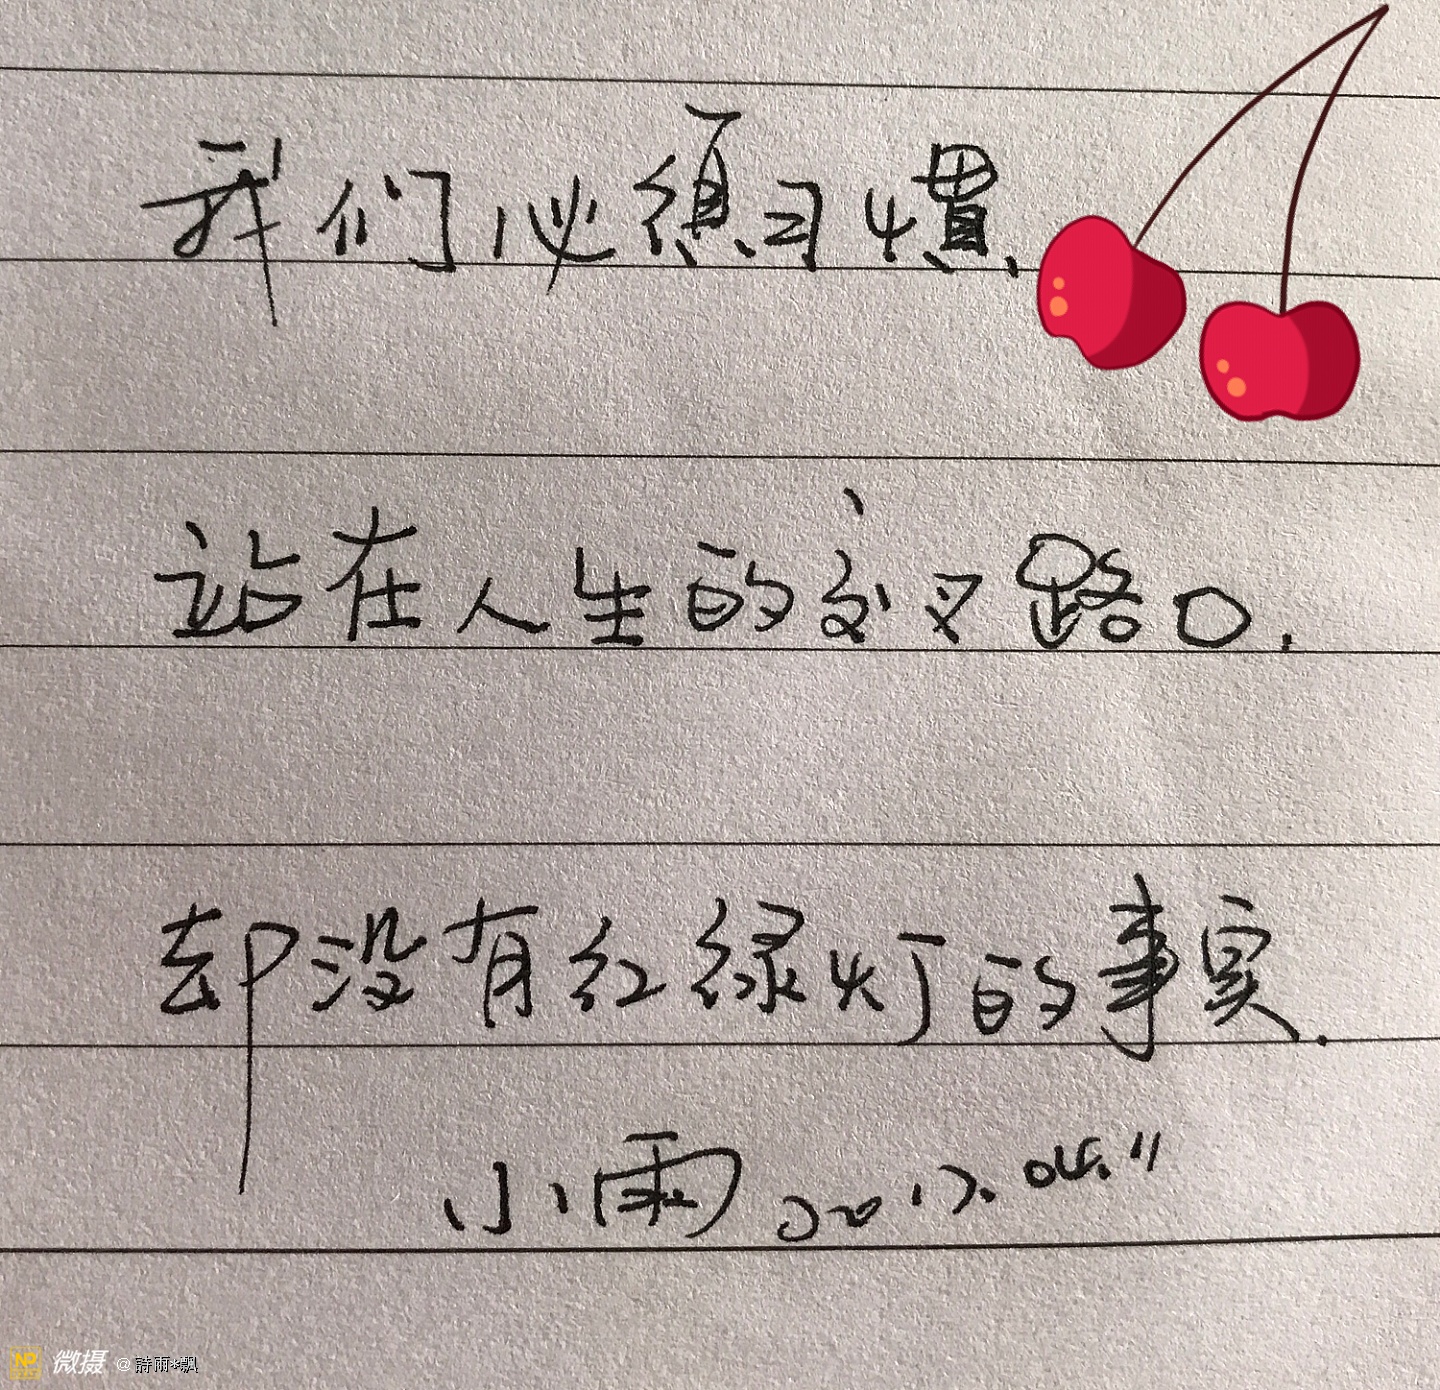 我们必须习惯,
站在人生的交叉路口,
却没有红绿灯的事实.
小雨 2017.04.11
微摄 @詩雨*飄